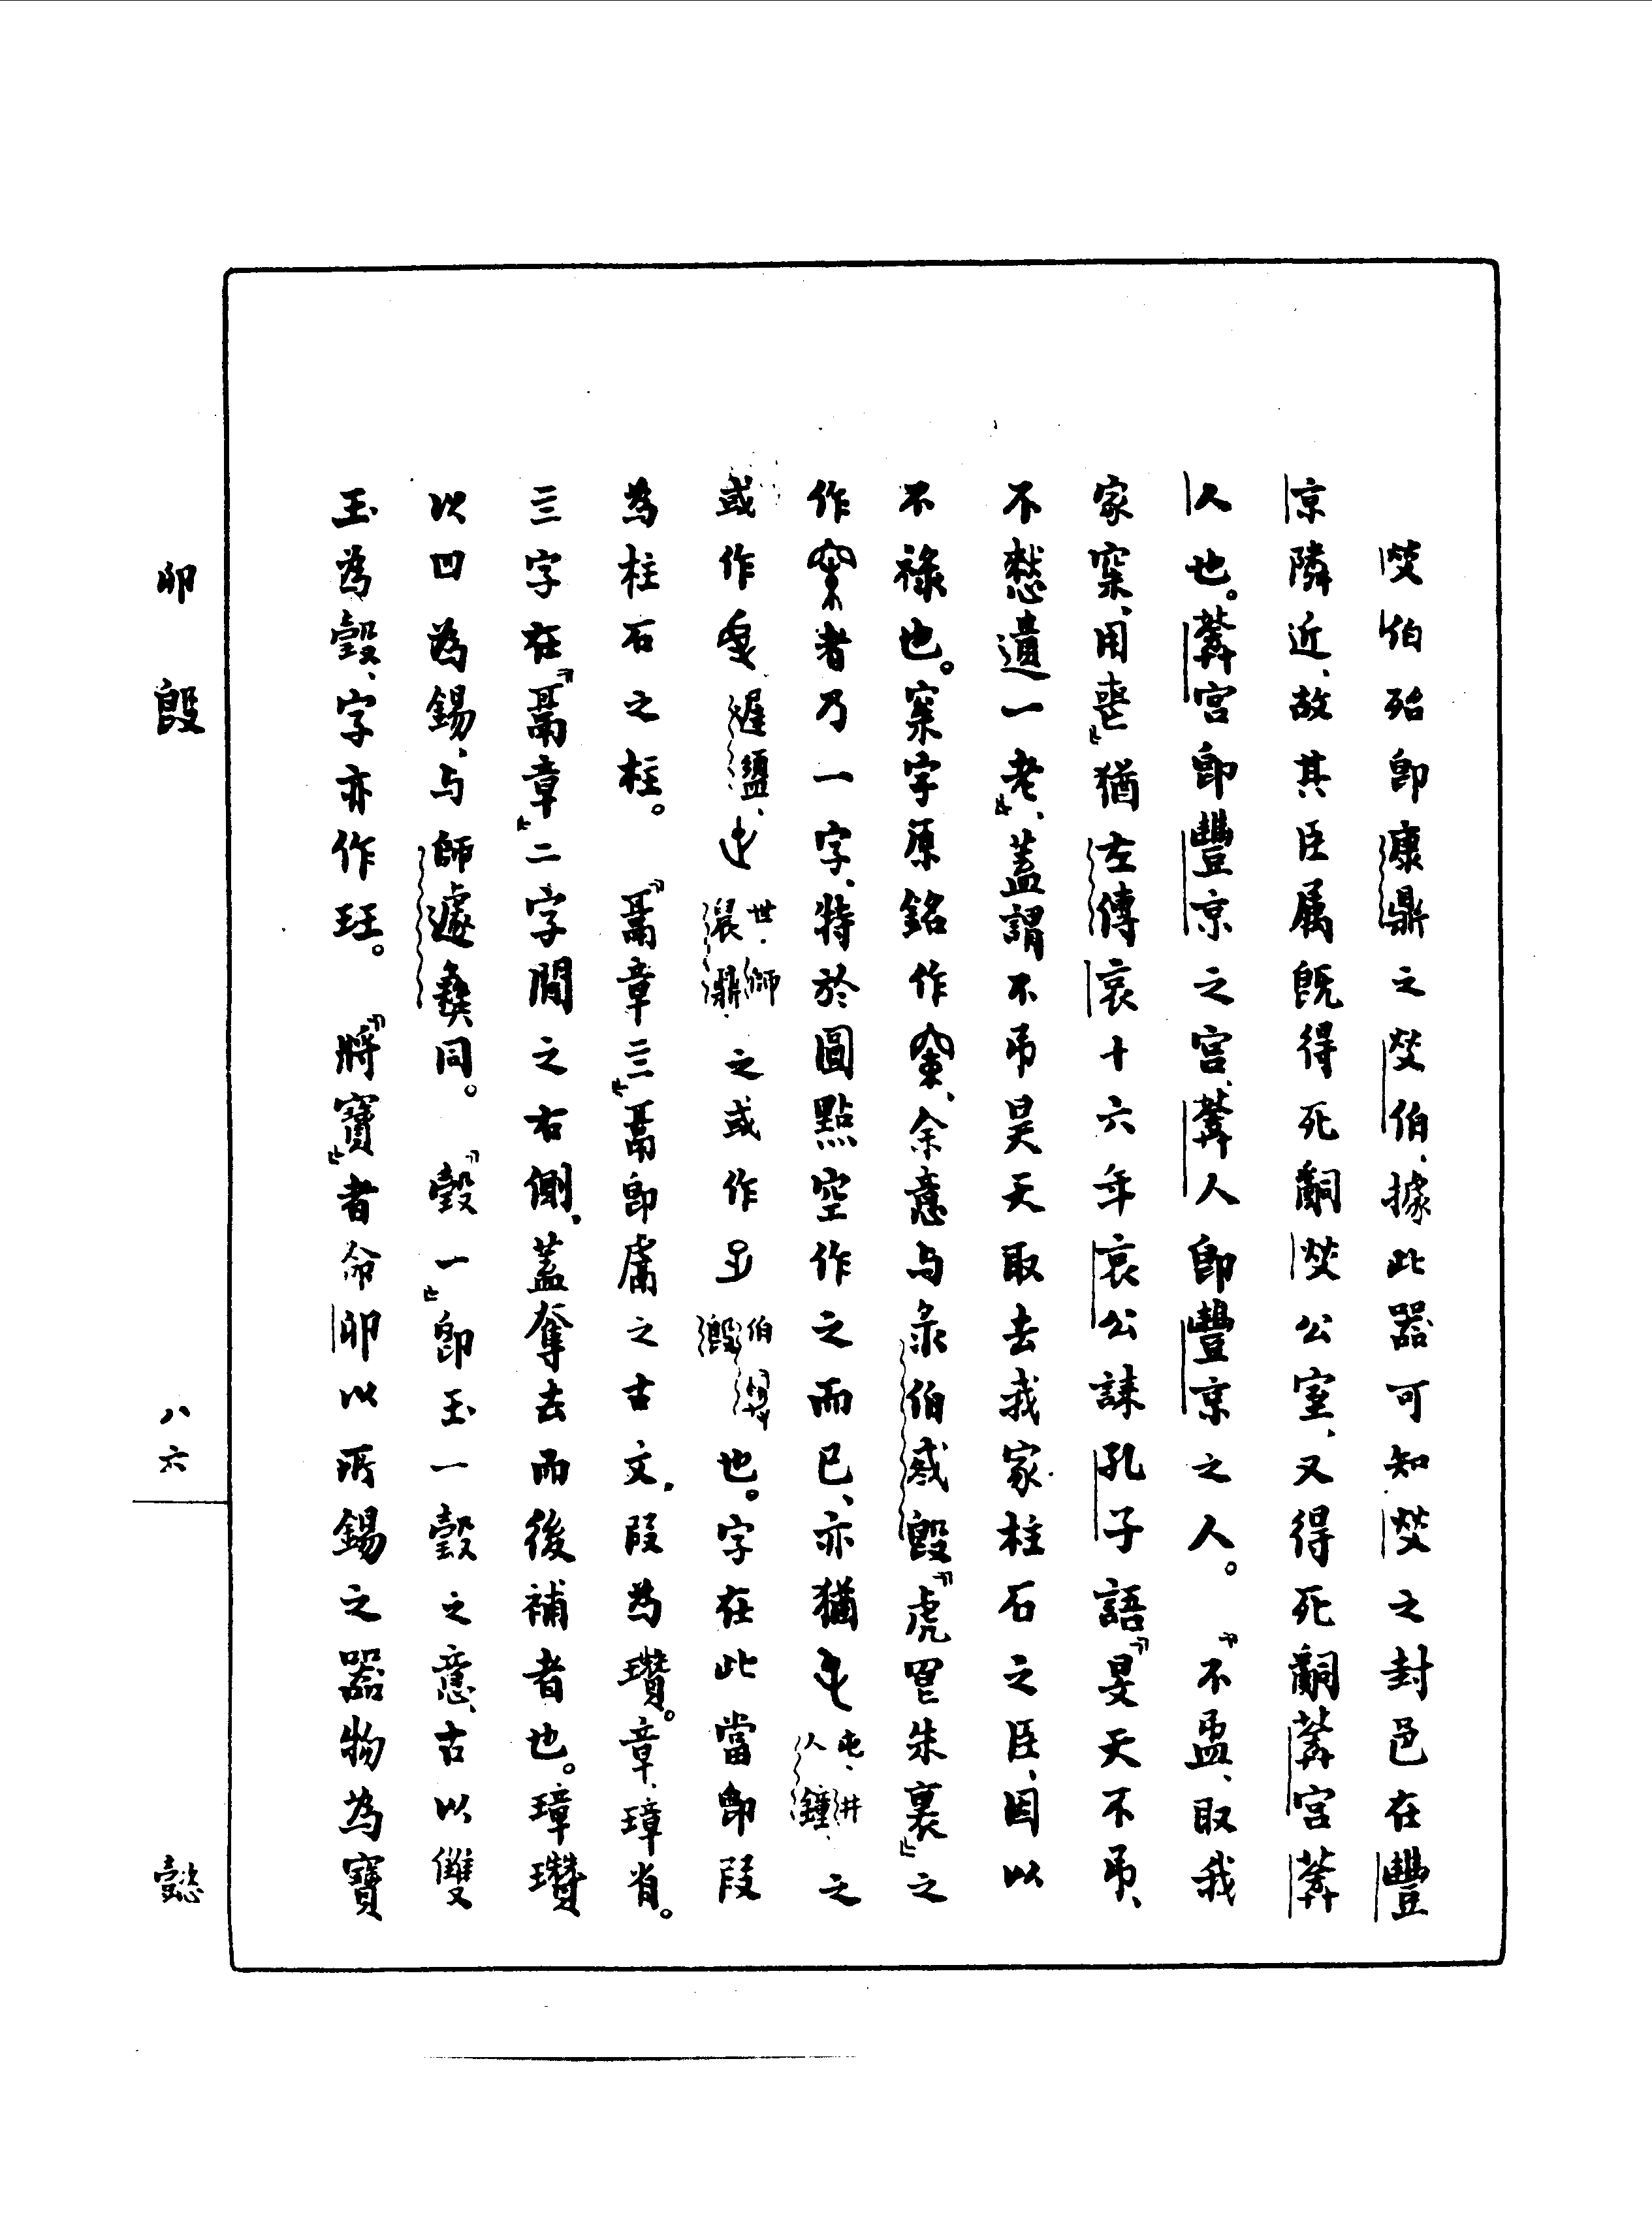 焂伯殆卽康鼎之焂伯、據此器可知焂之封邑在豐
京隣近、故其臣属既得死嗣焂公室、又得死嗣䓻宮䓻
人也。䓻宮卽豐京之宮、䓻人卽豐京之人。『不盄、取我
家窠、用喪』猶左傳哀十六年哀公誄孔子語『旻天不弔、
不憖遺一老』、蓋謂不弔昊天取去我家柱石之臣、因以
不祿也。窠字原銘作、余意与彔伯㦰𣪘『虎冟朱裏』之
作者乃一字、特於圓點空作之而已、亦猶屯、井人鐘、之
或作遟盨、世、師晨鼎、之或作伯𣪘也。字在此當卽叚
為柱石之柱。『鬲章三』鬲卽庸之古文、叚為瓚。章、璋省。
三字在『鬲章』二字間之右側、蓋奪去而後補者也。璋瓚
以四為錫、与師遽彝同。『瑴一』卽玉一瑴之意、古以雙
玉為瑴、字亦作玨。『將寶』者命卯以所錫之器物為寶
卯𣪘
八六
懿